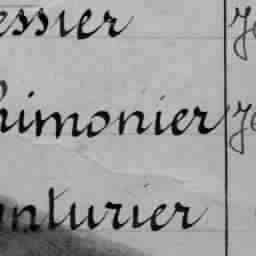 essier
himonier
nturier